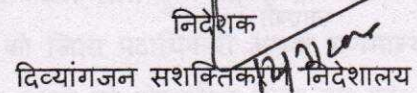 निदेशक
दिव्यांगजन सशक्तिकरण निदेशालय